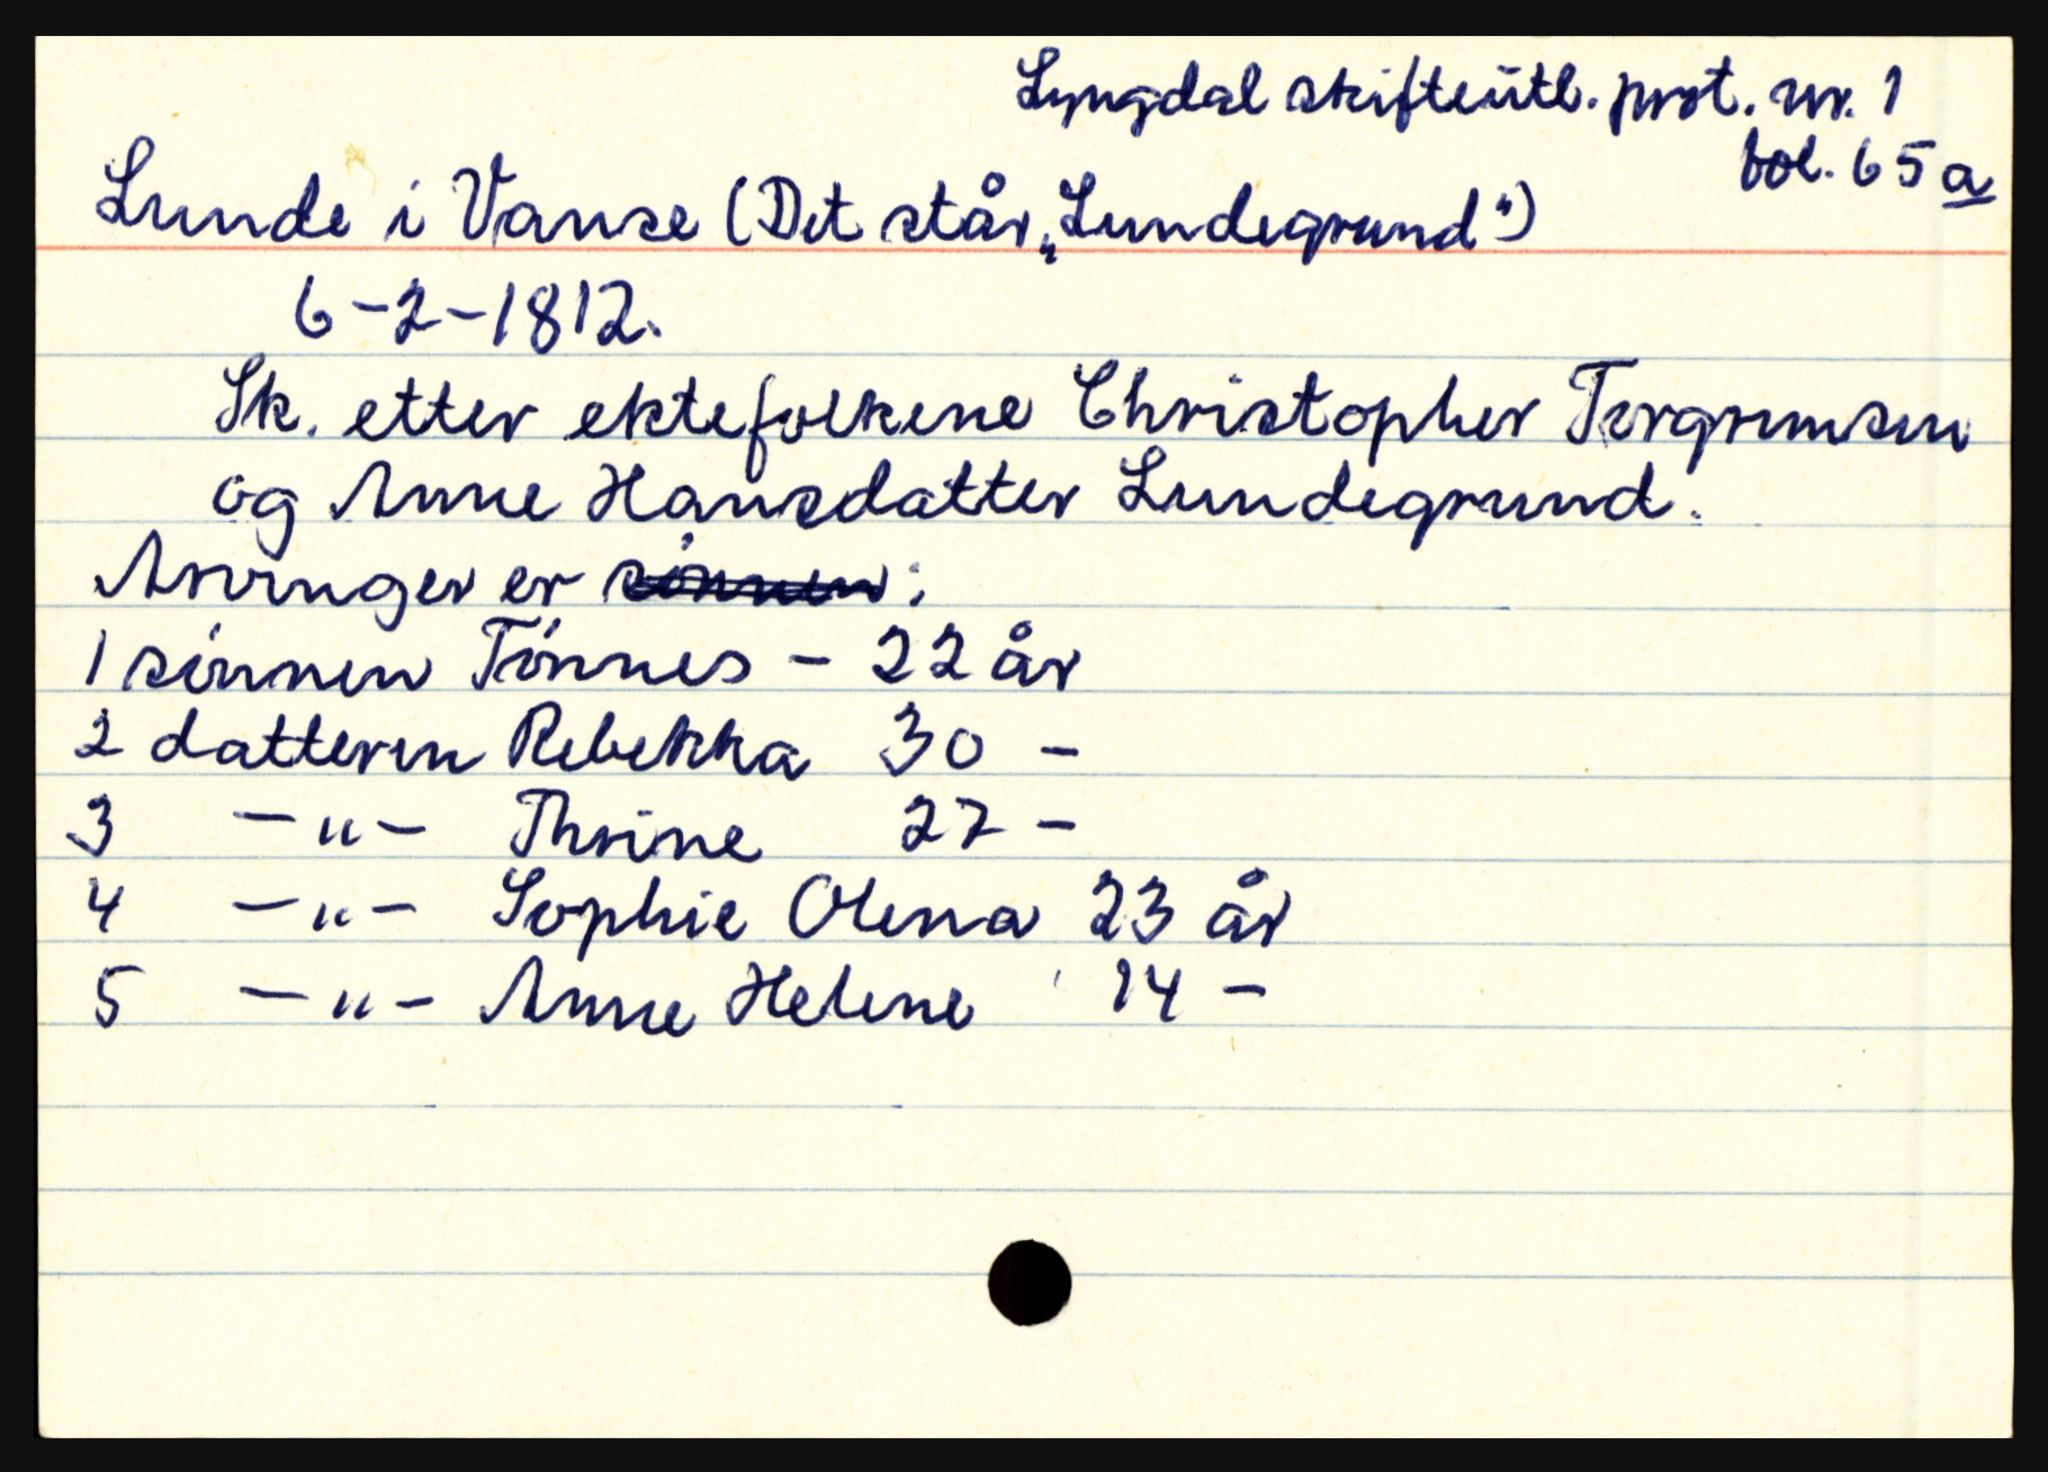 Lyngdal skifteutl. prot. nr. 1
fol. 65 a
Lunde i Vanse (Det står „Lundegrund")
6-2-1812.
Sk. etter ektefolkene Christopher Torgrimsen
og Anne Hansdatter Lundegrund.
Arvinger er sønnen:
1 sønnen Tønnes - 22 år
2 datteren Rebekka 30 -
3 - " - Thrine 27 -
4 - " - Sophie Olena 23 år
5 - " - Anne Helene 14 -